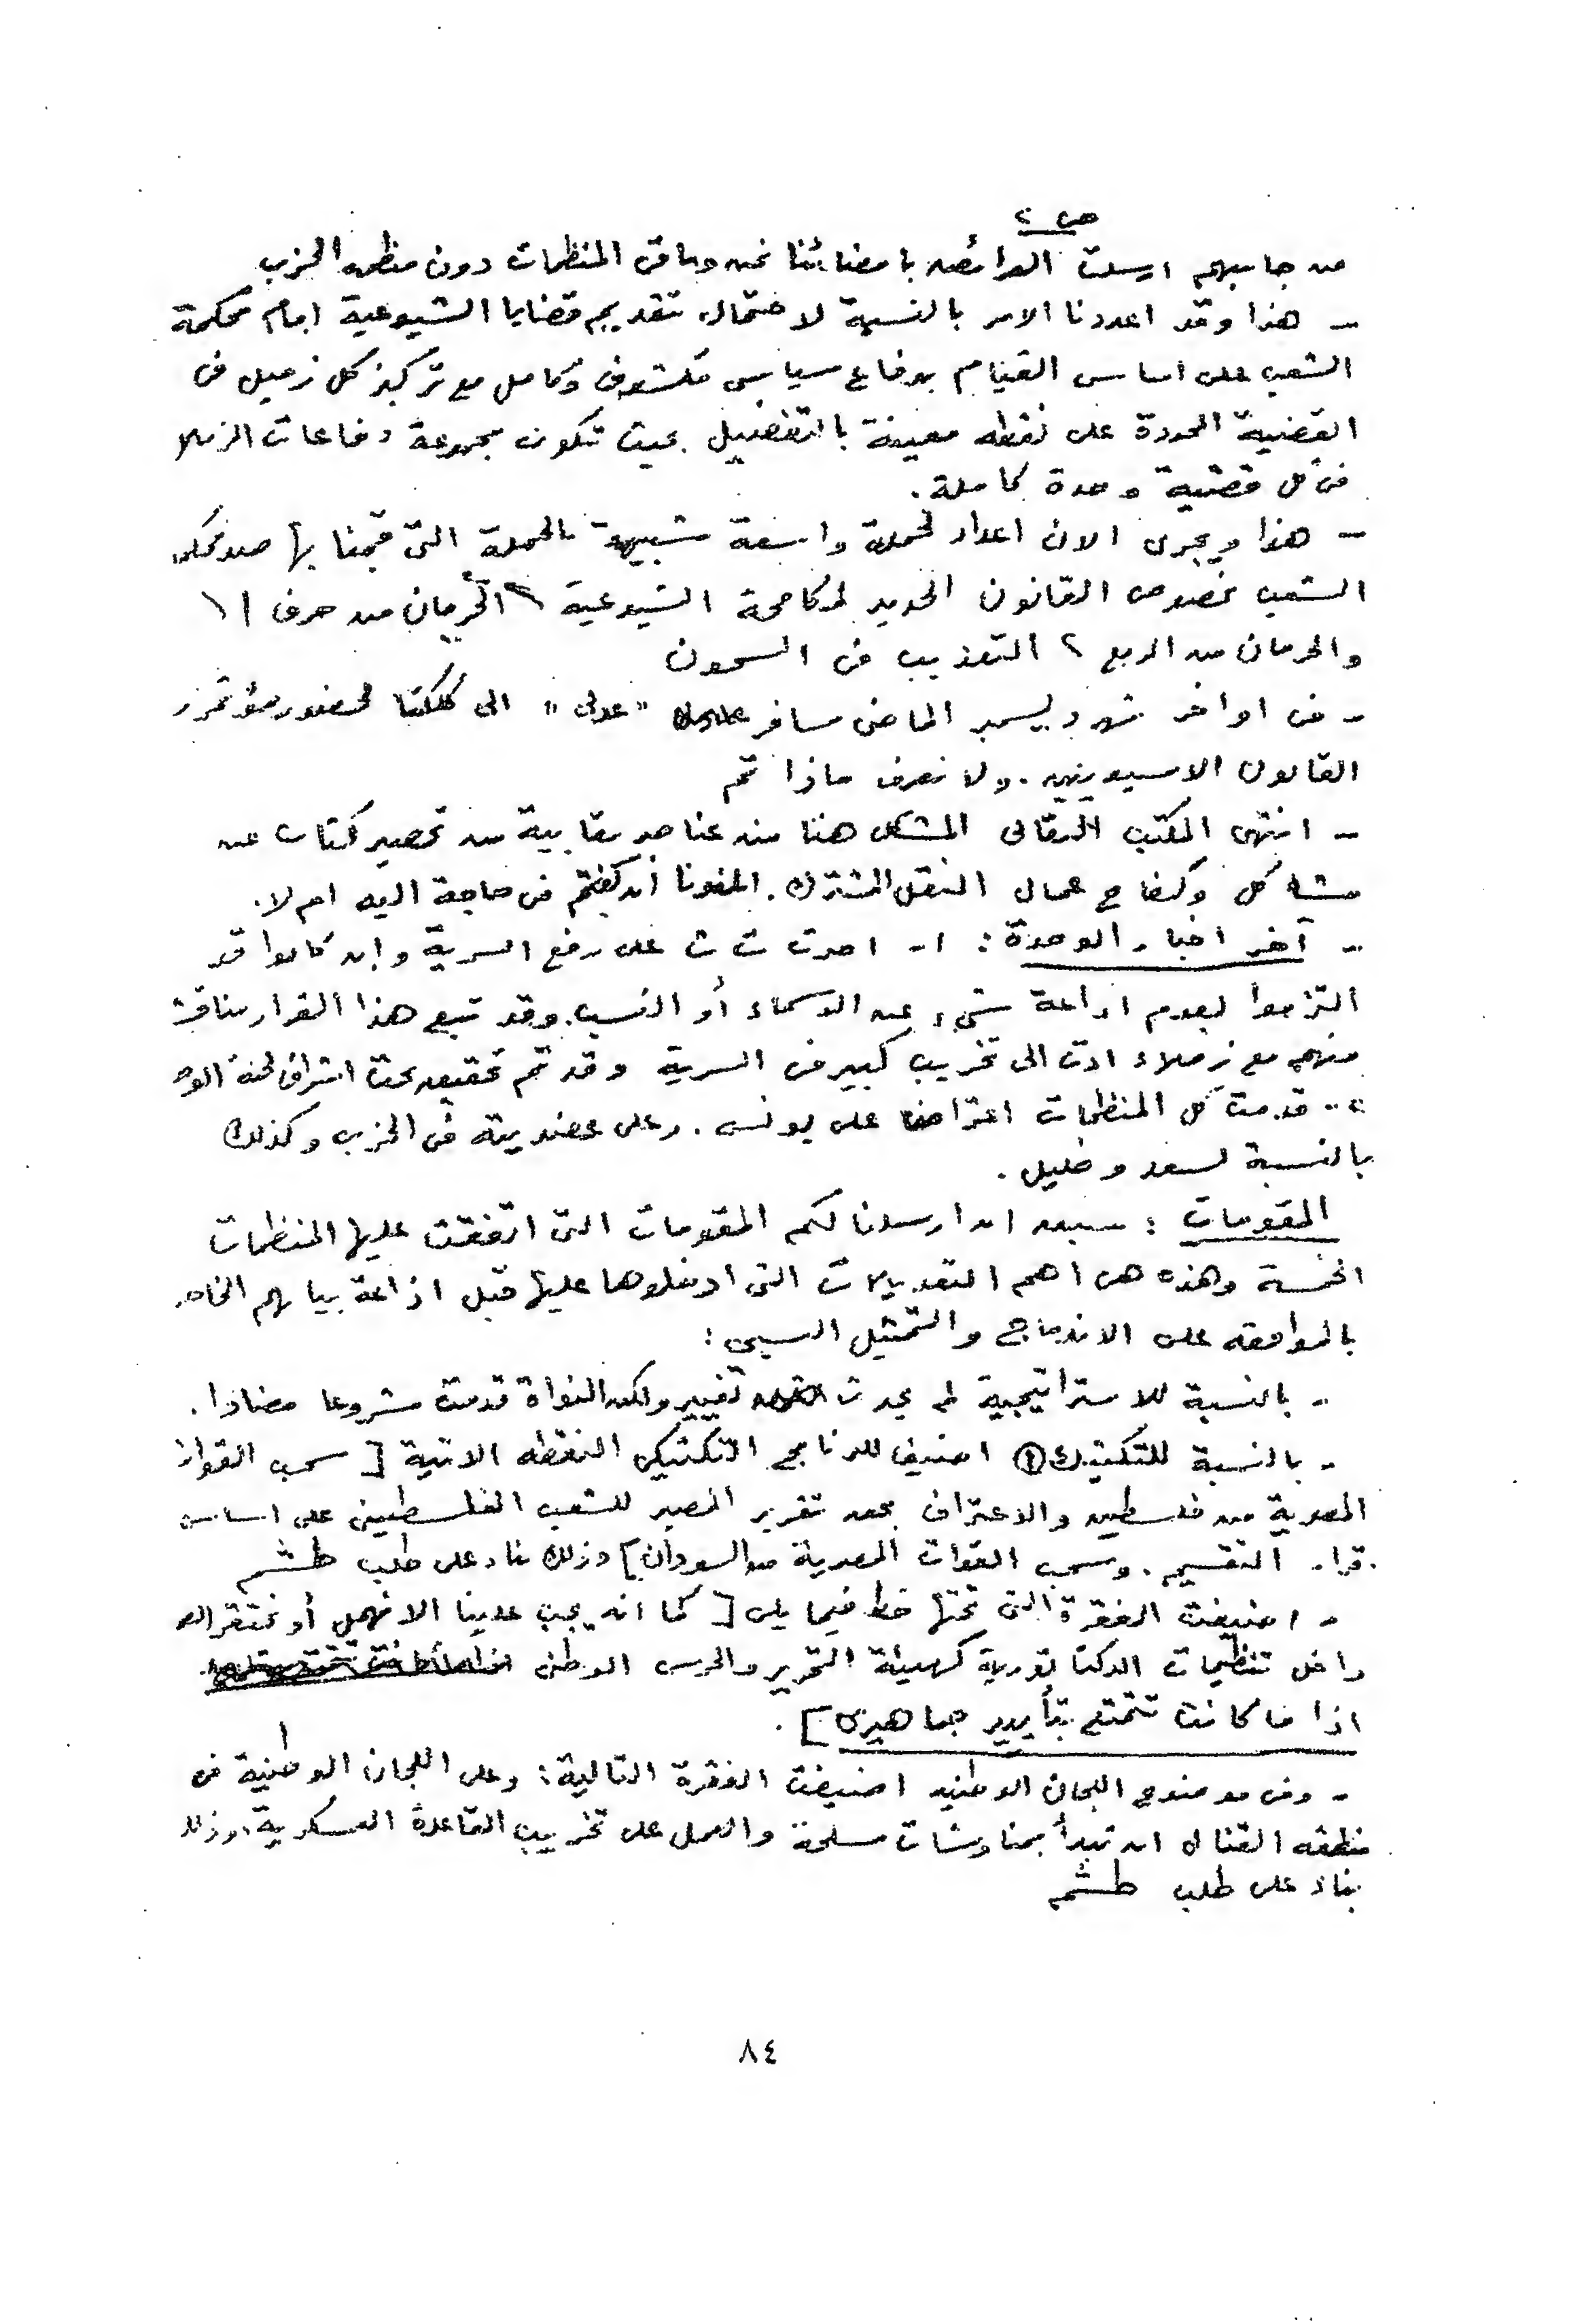 ص ٢
من جانبهم ارسلت العرائض بامضائنا نحن وباقى المنظمات دون منظمة الحزب
– هذا وقد اعددنا الامر بالنسبة لاحتمال تقديم قضايا الشيوعية امام محكمة
الشعب على اساس القيام بدفاع سياسى مكشوف وكامل مع تركيز كل زميل فى
القضية المحددة على نقطه معينة بالتفضيل بحيث تتكون مجموعة دفاعات الزملا
فى كل قضية وحدة كاملة.
– هذا ويجرى الان اعداد لحملة واسعة شبيهة بالحملة التى قمنا بها ضد محكمة
الشعب بخصوص القانون الجديد لمكافحة الشيوعية ، الحرمان من حرف ا
والحرمان من الربع ٢ التعذيب فى السجون
– فى اواخر شهر ديسمبر الماضى سافر "عدلى" الى كلكتا لحضور مؤتمر
القانون الاسيويين . ولا نعرف ماذا تم
– انتهى المكتب النقابى المشكل هنا من عناصر نقابية من تحضير كتاب عن
مشاكل وكفاح عمال النقل المشترك . ابلغونا أن كنتم فى حاجة اليه ام لا.
– آخر اخبار الوحدة : ١- اصرت ت ث على رفع السرية وان كانوا قد
التزموا بعدم اذاعة شىء عن الاسماء أو النسب. وقد تبع هذا القرار مناقشة
منهم مع زملاء ادت الى تخريب كبير فى السرية وقد تم تحقيق تحت اشراف لجنة الوحد
قدمت كل المنظمات اعتراضا على يونس . وعلى عضويته فى الحزب وكذلك
بالنسبة لسعد وخليل .
المقومات : سبق ان ارسلنا لكم المقومات التى اتفقت عليها المنظمات
الخمسة وهذه هى اهم التعديلات التى ادخلوها عليها قبل اذاعة بيانهم الخاص
بالموافقه على الاندماج والتمثيل النسبى :
– بالنسبة للاستراتيجية لم يحدث تغيير ولكن النواة قدمت مشروعا مضادا .
– بالنسبة للتكتيك ① اضيف للبرنامج التكتيكى النقطه الاتية [ سحب القوات
المصرية من فلسطين والاعتراف بحق تقرير المصير للشعب الفلسطينى على اساس
قرار التقسيم . وسحب القوات المصرية من السودان ] وذلك بناء على طلب طشم
– اضيفت الفقرة التى تحتها خط فيما يلى [ كما انه يجب علينا الا نهمل أو نحتقر العمل
داخل تنظيمات الدكتاتورية كهيئة التحرير والحرس الوطنى
اذا ما كانت تتمتع بتأييد جماهيرى ] .
– وفى موضوع اللجان الوطنيه اضيفت الفقرة التالية : وعلى اللجان الوطنية فى
منطقه القناه ان تبدأ بمناوشات مسلحة والعمل على تخريب القاعدة العسكرية . وذلك
بناء على طلب طشم
٨٤